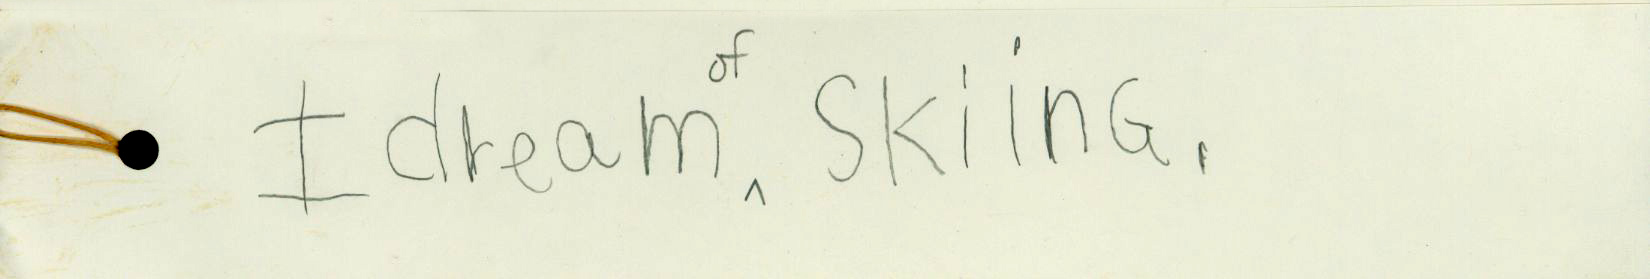 I dream of skiinG.